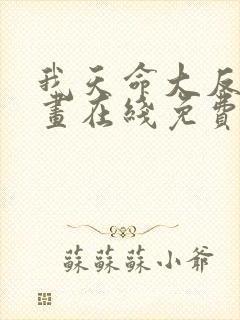 我天命大反
畫在綫免費
蘇蘇蘇小爺